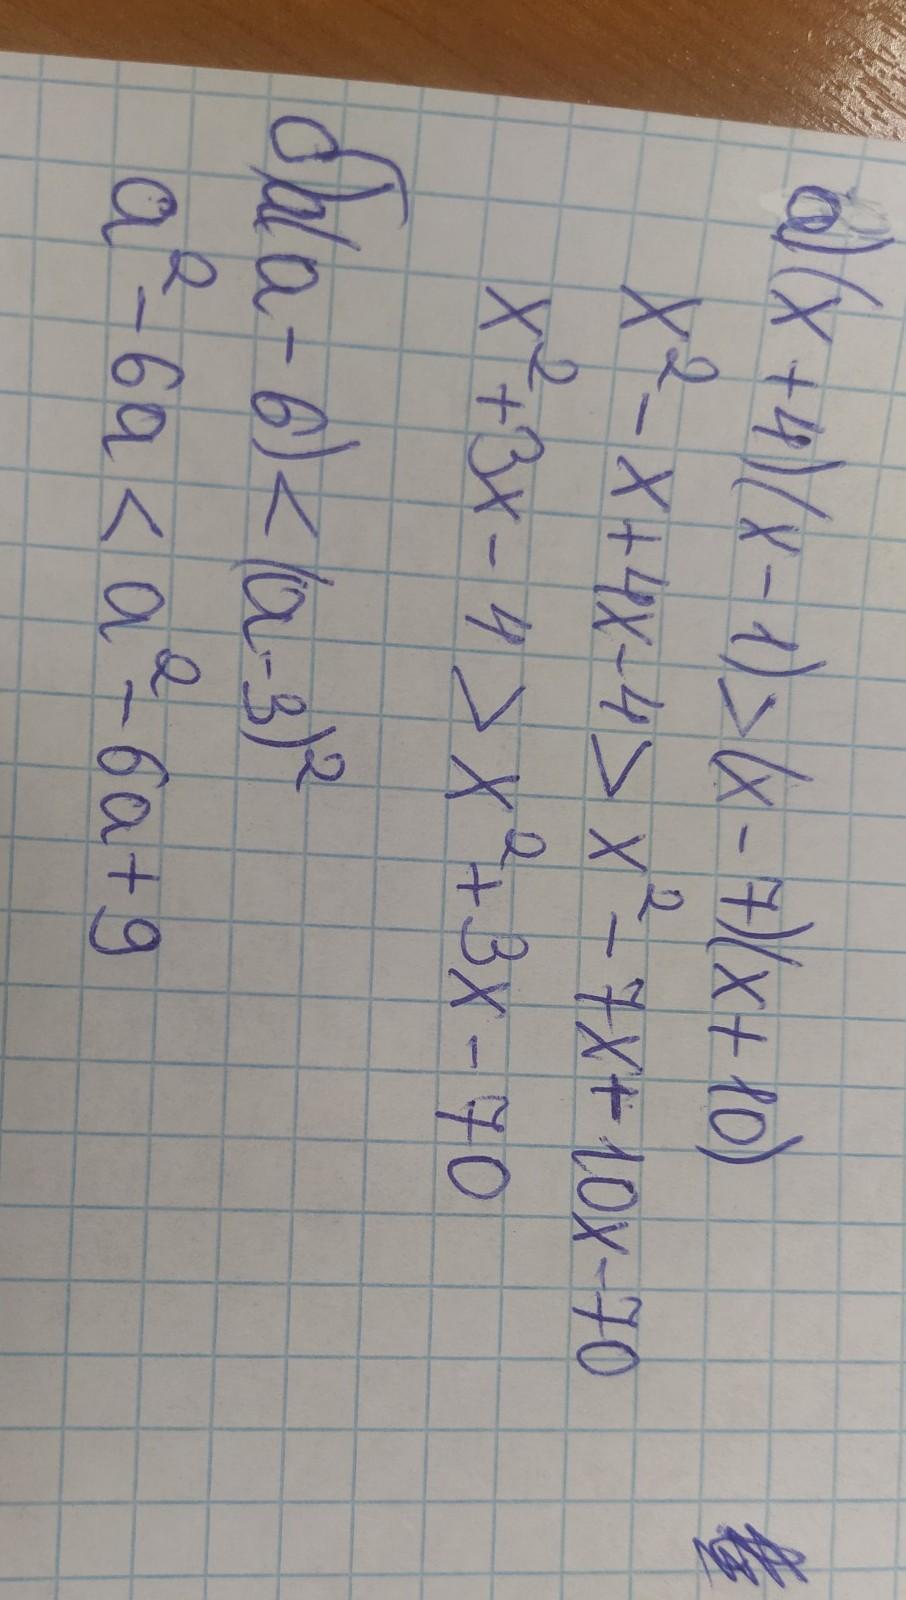 а) (x + 4)(x - 1) > (x - 7)(x + 10)
x² - x + 4x - 4 > x² - 7x + 10x - 70
x² + 3x - 4 > x² + 3x - 70
б) a(a - 6) < (a - 3)²
a² - 6a < a² - 6a + 9